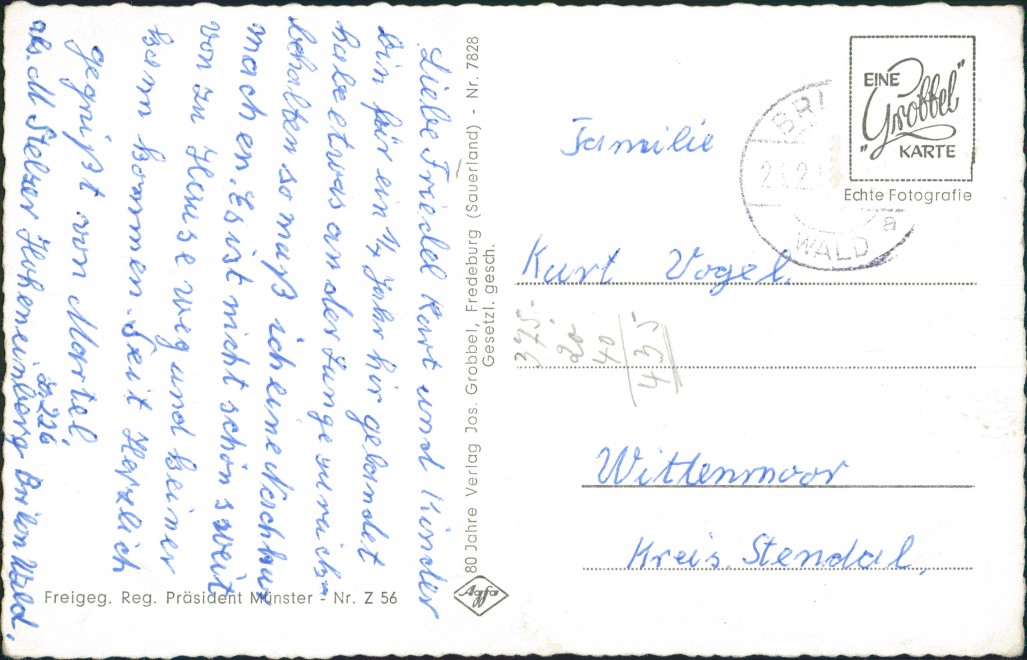 Liebe Friedel Kurt und Kinder
bin für ein 1/4 Jahr hir gelandet
habe etwas an der Lunge zurück
behalten so muß ich eine Nachkur
machen. Es ist nicht schön so weit
von zu Hause weg und keiner
kann kommen. Seit Herzlich
gegrüßt von Martel
als. M Stelzer Hoheneimberg Brilon Wald.
Familie
Kurt Vogel.
Wittenmoor
Kreis. Stendal.
375.-
20.-
40
435
EINE
"Grobbel"
KARTE
Echte Fotografie
BRI
WALD
a
80 Jahre Verlag Jos. Grobbel, Fredeburg (Sauerland) - Nr. 7828
Gesetzl. gesch.
Agfa
Freigeg. Reg. Präsident Münster - Nr. Z 56